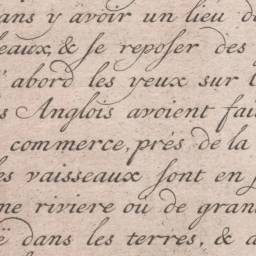 ans y avoir un lieu d
eaux, & se reposer des
d'abord les yeux sur l
s Anglois avoient fai
commerce, prés de la
es vaisseaux sont en s
ne riviere où de gran
ë dans les terres, & a